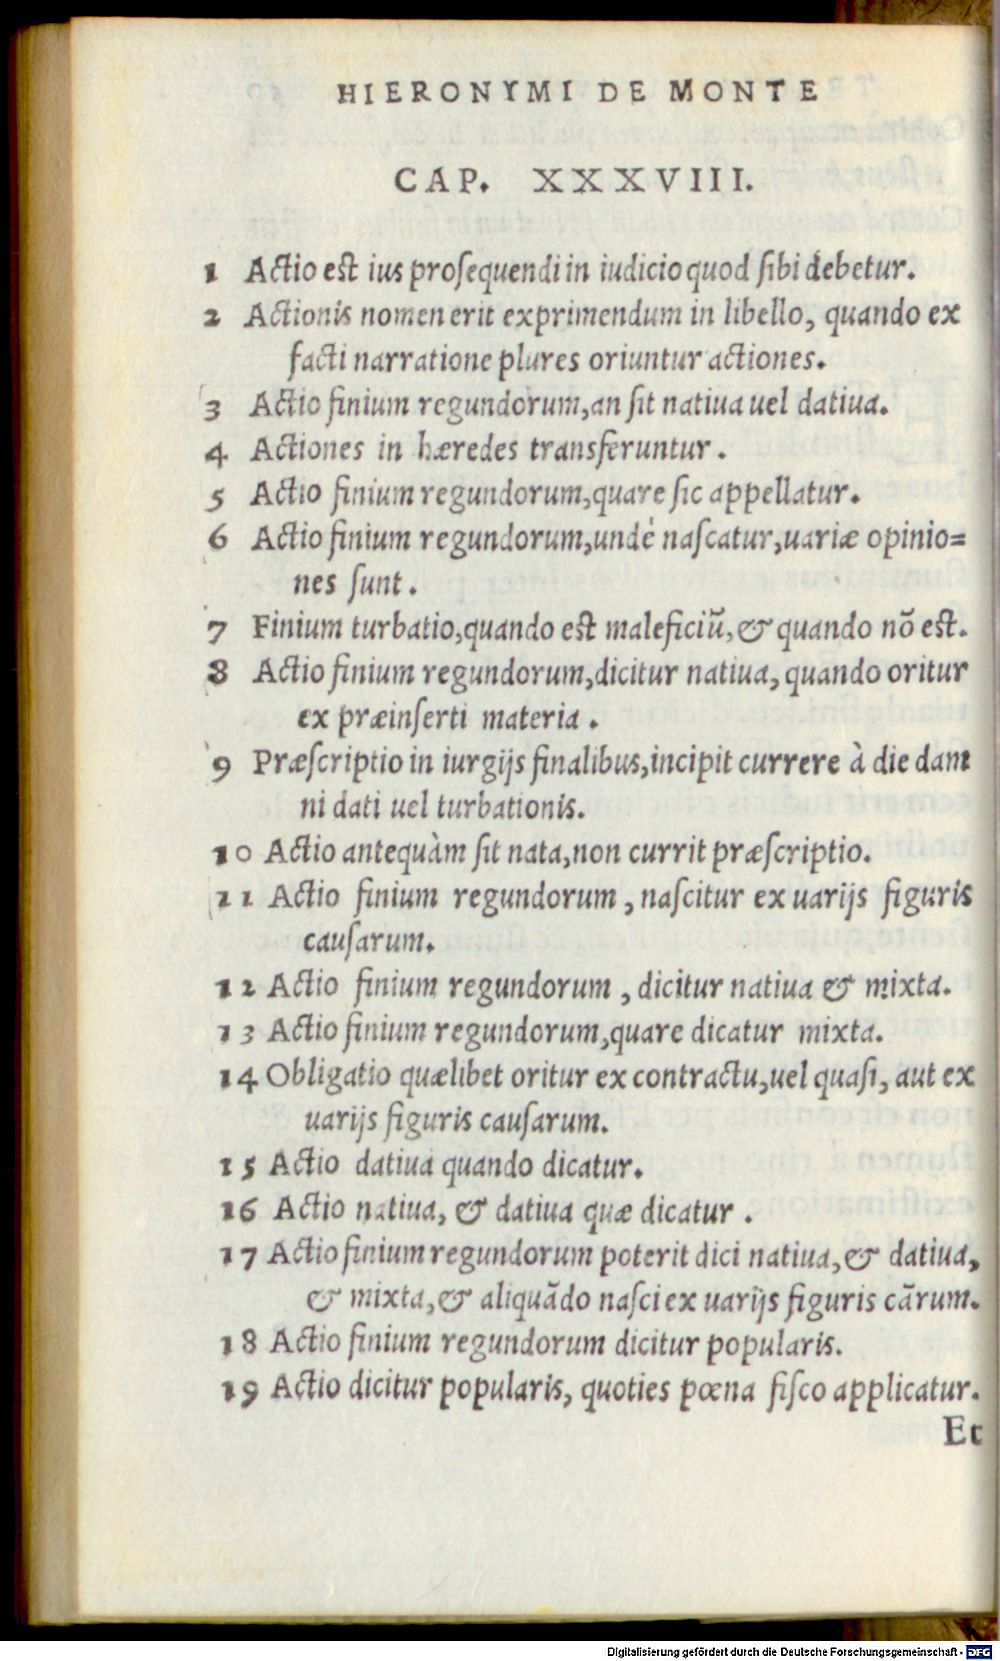 HIERONYMI DE MONTE
CAP. XXXVIII.
1 Actio est ius prosequendi in iudicio quod sibi debetur.
2 Actionis nomen erit exprimendum in libello, quando ex
facti narratione plures oriuntur actiones.
3 Actio finium regundorum, an sit natiua uel datiua.
4 Actiones in hæredes transferuntur.
5 Actio finium regundorum, quare sic appellatur.
6 Actio finium regundorum, undè nascatur, uariæ opinio=
nes sunt.
7 Finium turbatio, quando est maleficiũ, & quando nõ est.
8 Actio finium regundorum, dicitur natiua, quando oritur
ex præinserti materia.
9 Præscriptio in iurgijs finalibus, incipit currere à die dam
ni dati uel turbationis.
10 Actio antequàm sit nata, non currit præscriptio.
11 Actio finium regundorum, nascitur ex uarijs figuris
causarum.
12 Actio finium regundorum, dicitur natiua & mixta.
13 Actio finium regundorum, quare dicatur mixta.
14 Obligatio quælibet oritur ex contractu, uel quasi, aut ex
uarijs figuris causarum.
15 Actio datiua quando dicatur.
16 Actio natiua, & datiua quæ dicatur.
17 Actio finium regundorum poterit dici natiua, & datiua,
& mixta, & aliquãdo nasci ex uarijs figuris cãrum.
18 Actio finium regundorum dicitur popularis.
19 Actio dicitur popularis, quoties pœna fisco applicatur.
Et
Digitalisierung gefördert durch die Deutsche Forschungsgemeinschaft - DFG